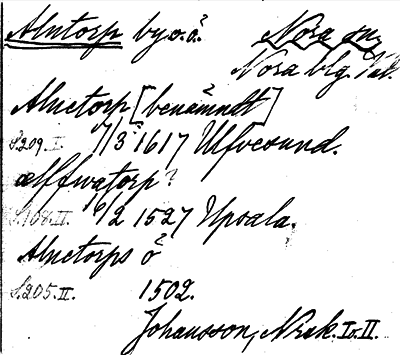 Alntorp by o. ö. Nora sn,
Nora blg. Väl.
Alnetorp [benämndt ö]
S.209.I. 7/3 1617 Ulfvesund.
ælffwatorp?
S.108.II. 6/2 1527 Upsala.
Alnetorps ö
S.205.II. 1502.
Johansson, Nrak. I o. II.